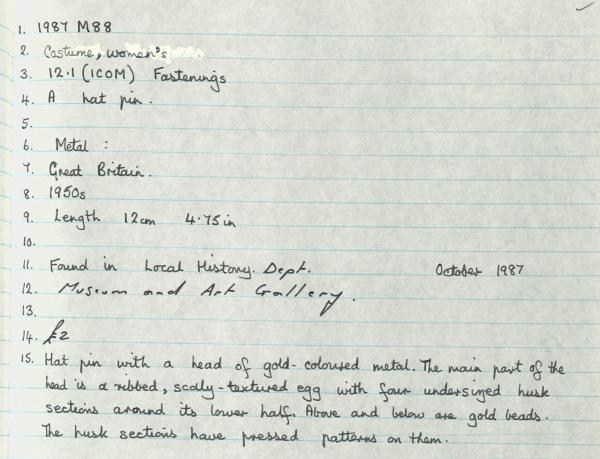 1. 1987 M88
2. Costume, women's
3. 12.1 (ICOM) Fastenings
4. A hat pin.
5.
6. Metal :
7. Great Britain.
8. 1950s
9. Length 12cm 4.75in
10.
11. Found in Local History. Dept. October 1987
12. Museum and Art Gallery.
13.
14. £2
15. Hat pin with a head of gold-coloured metal. The main part of the
head is a ribbed, scaly-textured egg with four undersized husk
sections around its lower half. Above and below are gold beads.
The husk sections have pressed patterns on them.